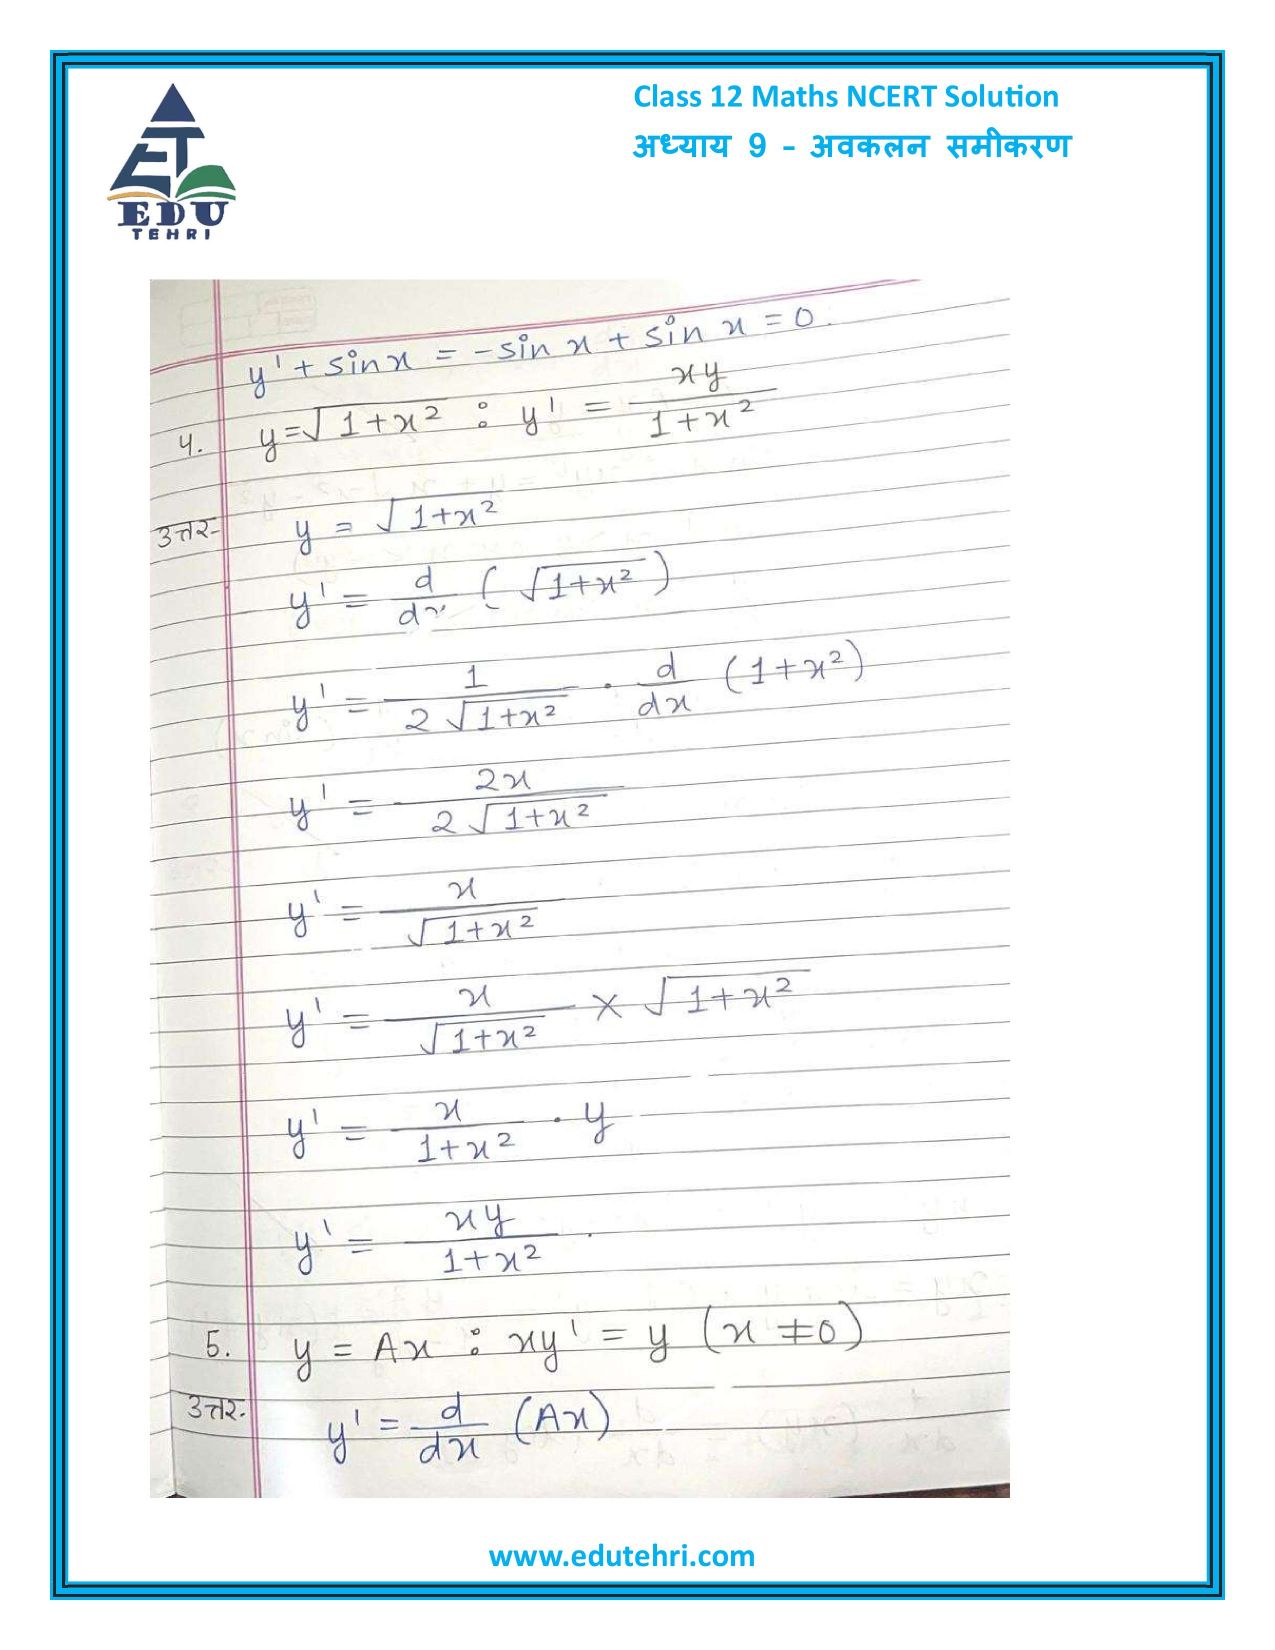 Class 12 Maths NCERT Solution
अध्याय 9 - अवकलन समीकरण
EDU
TEHRI
y' + sin x = - sin x + sin x = 0.
4. y = √(1+x²) : y' = xy/(1+x²)
उत्तर- y = √(1+x²)
y' = d/dx (√(1+x²))
y' = 1/(2√(1+x²)) · d/dx (1+x²)
y' = 2x/(2√(1+x²))
y' = x/√(1+x²)
y' = x/√(1+x²) × √(1+x²)
y' = x/(1+x²) · y
y' = xy/(1+x²) .
5. y = Ax : xy' = y (x ≠ 0)
उत्तर- y' = d/dx (Ax)
www.edutehri.com